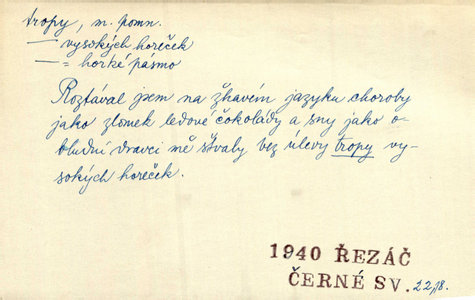 tropy, m. pomn.
— vysokých horeček
— = horké pásmo
Roztával jsem na žhavém jazyku choroby
jako zlomek ledové čokolády a sny jako o-
bludní dravci mě štvaly bez úlevy tropy vy-
sokých horeček.
1940 ŘEZÁČ
ČERNÉ SV. 22,18.